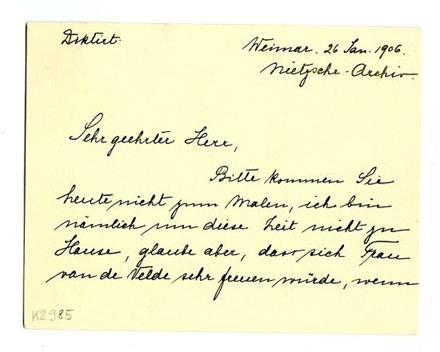 Diktirt.
Weimar. 26 Jan. 1906.
Nietzsche-Archiv.
Sehr geehrter Herr,
Bitte kommen Sie
heute nicht zum Malen, ich bin
nämlich um diese Zeit nicht zu
Hause, glaube aber, dass sich Frau
van de Velde sehr freuen würde, wenn
K2985